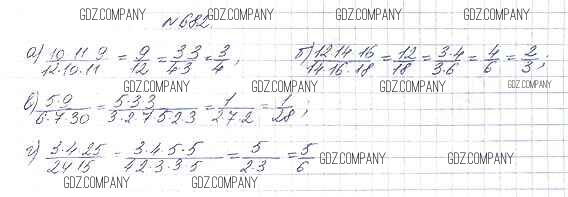 GDZ.COMPANY GDZ.COMPANY GDZ.COMPANY GDZ.COMPANY
№682.
а) 10 11 9 / 12·10·11 = 9/12 = 3·3/4·3 = 3/4; б) 12 14 16 / 14·16·18 = 12/18 = 3·4/3·6 = 4/6 = 2/3;
GDZ.COMPANY GDZ.COMPANY GDZ.COMPANY GDZ.COMPANY
в) 5·9 / 6·7·30 = 5·3·3 / 3·2·7·5·2·3 = 1 / 2·7·2 = 1/28;
г) 3·4·25 / 24 15 = 3·4·5·5 / 4·2·3·3·5 = 5 / 2·3 = 5/6
GDZ.COMPANY GDZ.COMPANY
GDZ.COMPANY GDZ.COMPANY